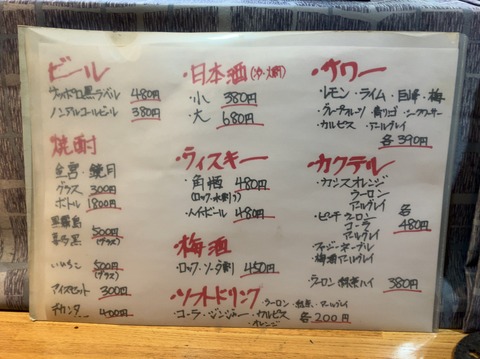 ビール
サッポロ黒ラベル 480円
ノンアルコールビール 380円
焼酎
・鏡月
グラス 300円
ボトル 1800円
黒霧島 500円
(グラス)
いいちこ 500円
(グラス)
アイスセット 300円
デカンタ 400円
・日本酒
・小 380円
・大 680円
・ウィスキー
・角
(ロック・水割り)
480円
・ハイボール 480円
梅酒
・ロック・ソーダ割 450円
・ソフトドリンク
・コーラ・ジンジャー・カルピス
オレンジ
・ウーロン・緑茶・アールグレイ
各200円
・サワー
・レモン・ライム・巨峰・梅
・グレープフルーツ・青リンゴ・シークワーサー
・カルピス・アールグレイ
各390円
・カクテル
・カシスオレンジ
ウーロン
アールグレイ
・ピーチウーロン
コーラ
アールグレイ
各480円
・ファジーネーブル
・梅酒アールグレイ
・ウーロン・緑茶ハイ 380円